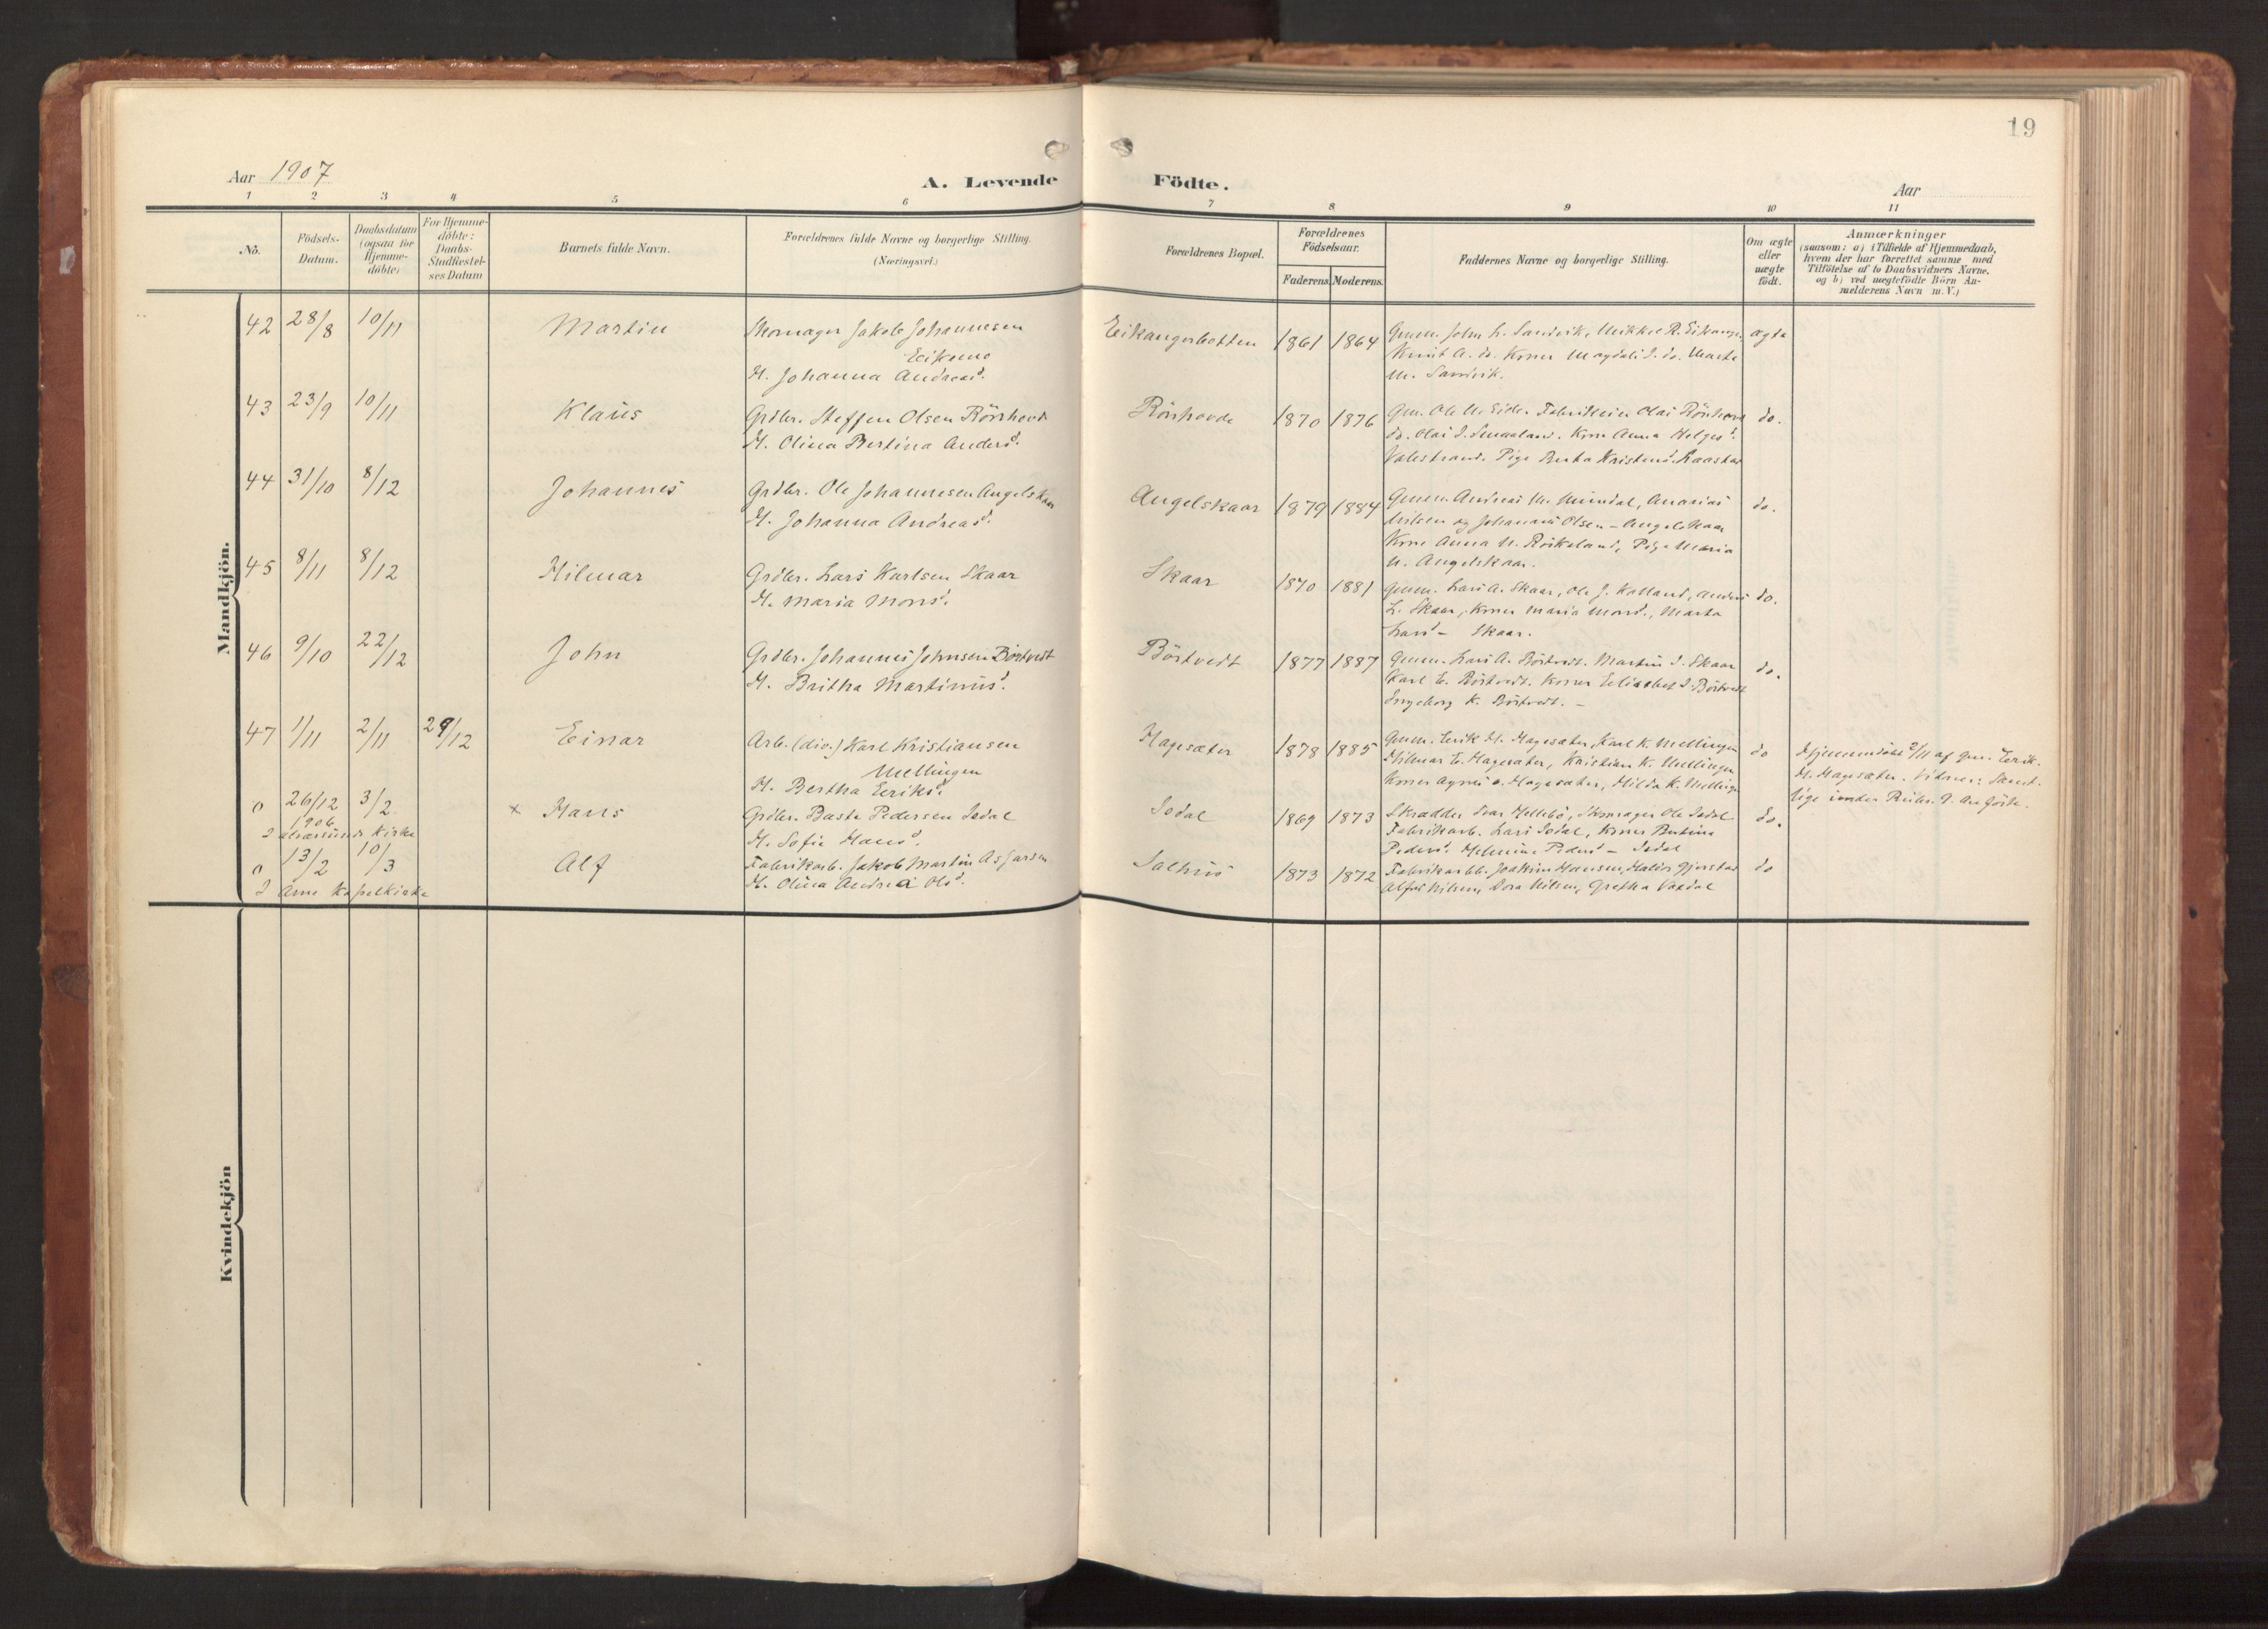 19
Aar 1907
A. Levende Födte.
Aar
1 2 3 4 5 6 7 8 9 10 11
No.
Födsels-
Datum.
Daabsdatum
(ogsaa for
Hjemme-
döbte)
For Hjemme-
döbte:
Daabs-
Stadfæstel-
ses Datum
Barnets fulde Navn.
Forældrenes fulde Navne og borgerlige Stilling.
(Næringsvei.)
Forældrenes Bopæl.
Forældrenes
Födselsaar.
Faderens. Moderens.
Faddernes Navne og borgerlige Stilling.
Om ægte
eller
uægte
födt.
Anmærkninger
(saasom: a) i Tilfælde af Hjemmedaab,
hvem der har forrettet samme med
Tilföielse af to Daabsvidners Navne.
og b) ved uægtefödte Börn An-
melderens Navn m. V.)
Mandkjön.
42 28/8 10/11 Martin Skomager Jakob Johannesen
Eikemo
H. Johanna Andreasd.
Eikangerbotten 1861 1864 Gmm. John L. Sandvik, Mikkel R. Eikanger,
Knut A. do. Koner Magdeli I. do. Marta
M. Sandvik.
ægte
43 23/9 10/11 Klaus Grdbr. Steffen Olsen Rörshovd
H. Olina Bertina Andersd.
Rörshovde 1870 1876 Gm. Ole N. Eide. Olai Rörshovd
do. Olai I. Kone Anna Helgesd.
Valestrand. Pige Berta Kristensd.
do.
44 31/10 8/12 Johannes Grdbr. Ole Johannesen Angelskaar
H. Johanna Andreasd.
Angelskaar 1879 1884 Gmm. Andreas M. Mundal, Ananias
Nilsen og Johannes Olsen - Angelskaar
Kone Anna N. Röskeland, Pige Maria
N. Angelskaar.
do.
45 8/11 8/12 Hilmar Grdbr. Lars Karlsen Skaar
H. Maria Monsd.
Skaar 1870 1881 Gmm. Lars A. Skaar, Ole J. Kolland, Anders
L. Skaar, Koner Maria Monsd., Marta
Larsd - Skaar.
do.
46 9/10 22/12 John Grdbr. Johannes Johnsen Börtvedt
H. Britha Martinusd.
Börtvedt 1877 1887 Gmm. Lars A. Börtvedt. Martin I. Skaar
Karl E. Börtvedt. Koner Elisabet I. Börtvedt
Ingeborg K. Börtvedt. -
do.
47 1/11 2/11 29/12 Einar Arb. (div.) Karl Kristiansen
Mellingen
H. Bertha Eriksd.
Hagesæter 1878 1885 Gmm. Erik H. Hagesæter, Karl K. Mellingen
Hilmar E. Hagesæter, Kristian K. Mellingen
Koner Agnes Hagesæter, Hilda K. Mellingen
do Hjemmedöbt 2/11 af gm. Erik
H. Hagesæter. Vidner: Samt-
lige under Rubr. 9. Anförte.
0 26/12 1906 3/2 × Hans Grdbr. Baste Pedersen Isdal
H. Sofie Hansd.
I Alversunds Kirke
Isdal 1869 1873 Skrædder Ivar Hellebö, Skomager Ole Isdal
Fabrikarb. Lars Isdal, Koner Bertina
Pedersd. Helmine Pedersd - Isdal
do.
0 13/2 10/3 Alf Fabrikarb. Jakob Martin Asfarsen
H. Olina Andrea Olsd.
I Arne Kapelkirke
Salhus 1873 1872 Fabrikarbb. Joakim Hansen, Haldor Gjerstad
Alfred Nilsen, Dora Nilsen, Gretha Vardal
do
Kvindekjön